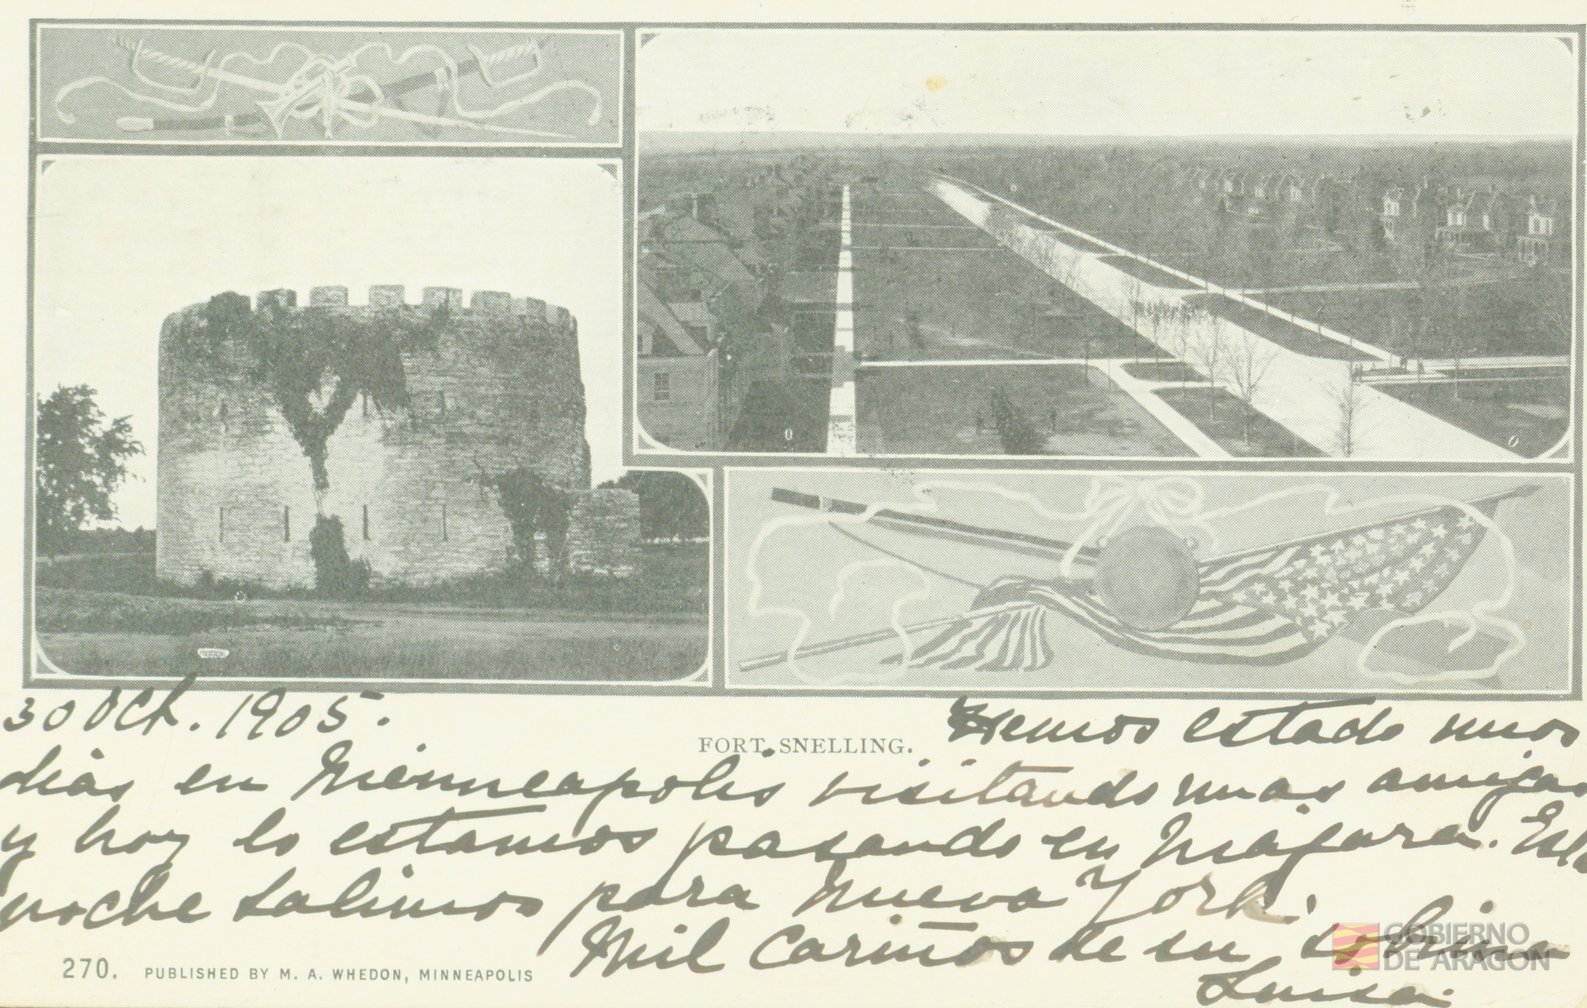 30 Oct. 1905.
FORT SNELLING.
Hemos estado unos
dias en Minneapolis visitando unas amigas
y hoy lo estamos pasando en Niágara. Esta
noche salimos para Nueva York.
Mil cariños de su sobrina
Luisa.
270. PUBLISHED BY M. A. WHEDON, MINNEAPOLIS
GOBIERNO
DE ARAGON